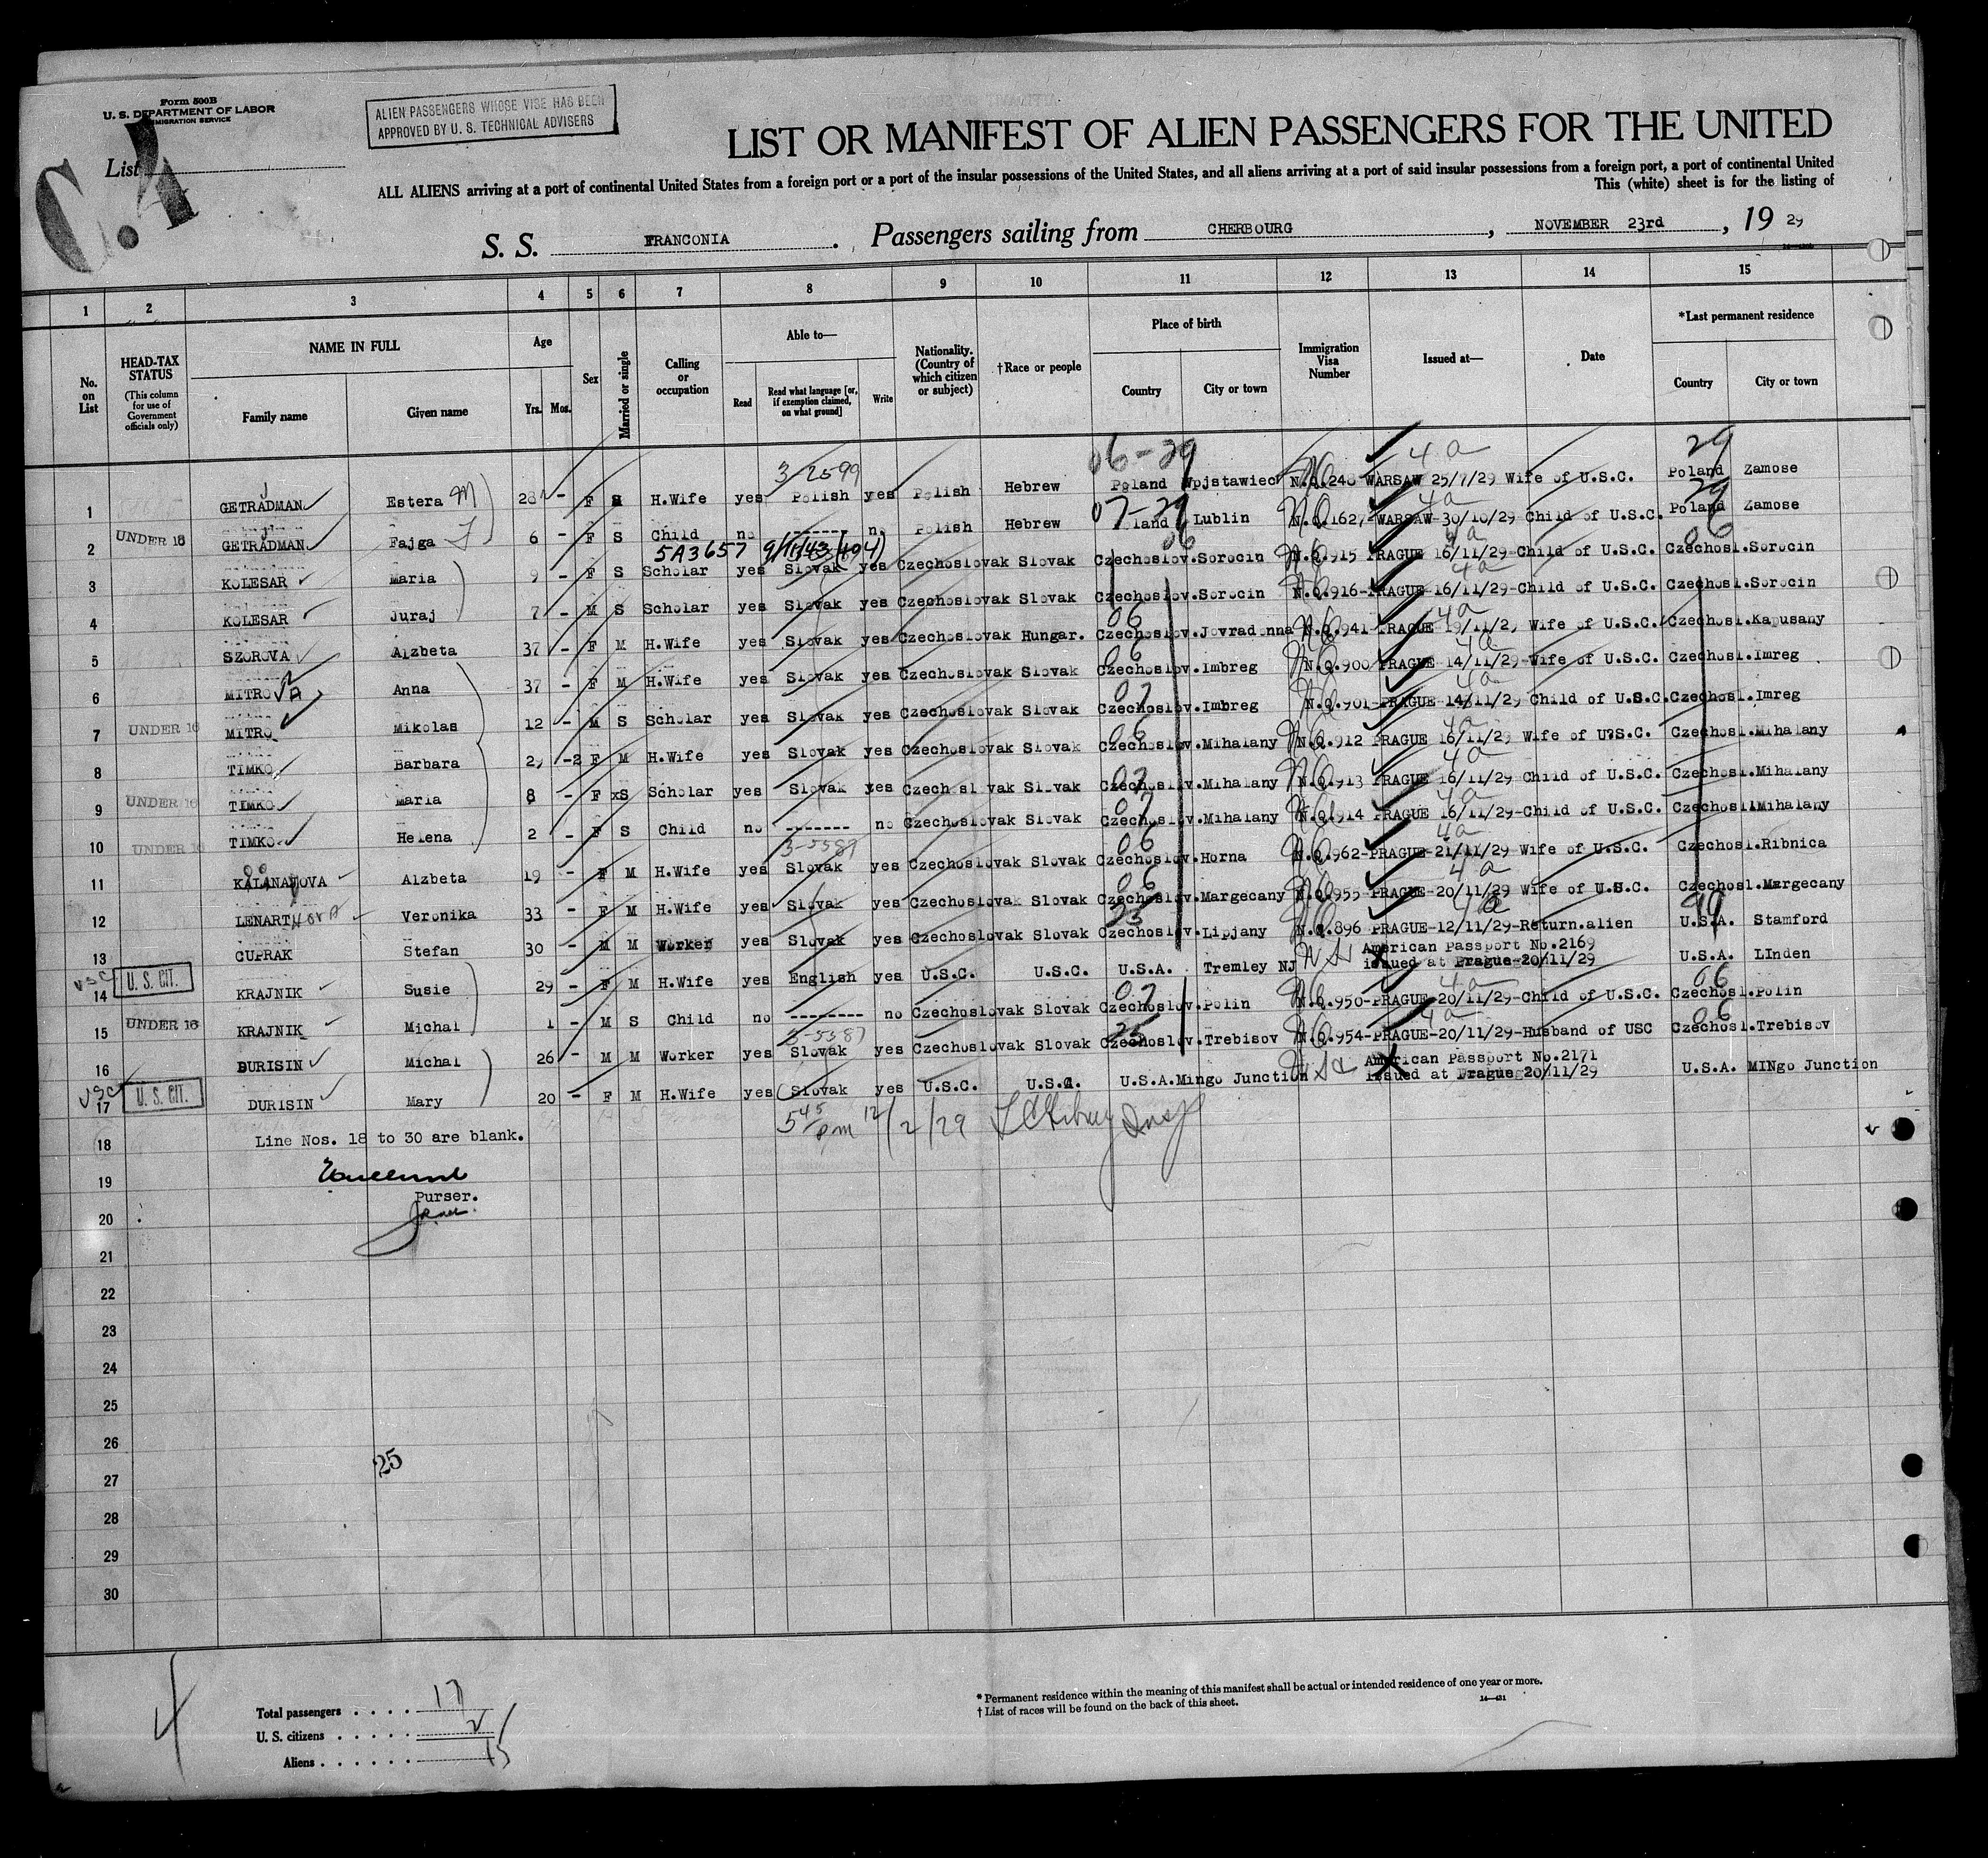 Form 500B
U. S. DEPARTMENT OF LABOR
IMMIGRATION SERVICE
ALIEN PASSENGERS WHOSE VISE HAS BEEN
APPROVED BY U. S. TECHNICAL ADVISERS
List
C.4
LIST OR MANIFEST OF ALIEN PASSENGERS FOR THE UNITED
ALL ALIENS arriving at a port of continental United States from a foreign port or a port of the insular possessions of the United States, and all aliens arriving at a port of said insular possessions from a foreign port, a port of continental United
This (white) sheet is for the listing of
S. S. FRANCONIA. Passengers sailing from CHERBOURG, NOVEMBER 23rd, 19 29
1 2 3 4 5 6 7 8 9 10 11 12 13 14 15
No. on List
HEAD-TAX STATUS (This column for use of Government officials only)
NAME IN FULL Family name Given name
Age Yrs. Mos.
Sex
Married or single
Calling or occupation
Able to— Read Read what language [or, if exemption claimed, on what ground] Write
Nationality. (Country of which citizen or subject)
†Race or people
Place of birth Country City or town
Immigration Visa Number
Issued at—
Date
*Last permanent residence Country City or town
06-29 4a 29
3/2599
1 GETRADMAN Estera M 28 - F H.Wife yes Polish yes Polish Hebrew Poland Wojstawiec N.Q.248-WARSAW 25/7/29 Wife of U.S.C. Poland Zamose
07-29 4a 29
2 UNDER 16 GETRADMAN Fajga F 6 - F S Child no ------ no Polish Hebrew land Lublin N.Q.162, WARSAW-30/10/29 Child of U.S.C. Poland Zamose
5A3657 9/11/43 (404) 06 4a 06
3 KOLESAR Maria 9 - F S Scholar yes Slovak yes Czechoslovak Slovak Czechoslov.Sorocin N.Q.915 PRAGUE 16/11/29-Child of U.S.C. Czechosl.Sorocin
4a
4 KOLESAR Juraj 7 - M S Scholar yes Slovak yes Czechoslovak Slovak Czechoslov.Sorocin N.Q.916-PRAGUE-16/11/29-Child of U.S.C. Czechosl.Sorocin
06 4a
5 SZOROVA Alzbeta 37 - F M H.Wife yes Slovak yes Czechoslovak Hungar. Czechoslov.Jovradonna N.Q.941-PRAGUE 19/11/2, Wife of U.S.C. Czechosl.Kapusany
06 4a
6 MITROVA Anna 37 - F M H.Wife yes Slovak yes Czechoslovak Slovak Czechoslov.Imbreg N.Q.900 PRAGUE 14/11/29-Wife of U.S.C. Czechosl.Imreg
07 4a
7 UNDER 16 MITRO Mikolas 12 - M S Scholar yes Slovak yes Czechoslovak Slovak Czechoslov.Imbreg N.Q.901-PRAGUE 14/11/29 Child of U.S.C.Czechosl.Imreg
06 4a
8 TIMKO Barbara 2, -2 F M H.Wife yes Slovak yes Czechoslovak Slovak Czechoslov.Mihalany N.Q.912 PRAGUE 16/11/29 Wife of U?S.C. Czechosl.Mihalany
07 4a
9 UNDER 16 TIMKO Maria 8 - F xS Scholar yes Slovak yes Czech sl vak Slovak Czechoslov.Mihalany N.Q.913 PRAGUE 16/11/29 Child of U.S.C. Czechosl.Mihalany
07 4a
10 UNDER 16 TIMKO Helena 2 - F S Child no ------- no Czechoslovak Slovak Czechoslov.Mihalany N.Q.914 PRAGUE 16/11/29-Child of U.S.C. Czechosl.Mihalany
3-5587 06 4a
11 KALANAJOVA Alzbeta 19 - F M H.Wife yes Slovak yes Czechoslovak Slovak Czechoslov.Horna N.Q.962-PRAGUE-21/11/29 Wife of U.S.C. Czechosl.Ribnica
06 4a
12 LENART Veronika 33 - F M H.Wife yes Slovak yes Czechoslovak Slovak Czechoslov.Margecany N.Q.955-PRAGUE-20/11/29 Wife of U.S.C. Czechosl.Margecany
23 99
13 CUPRAK Stefan 30 - M M Worker yes Slovak yes Czechoslovak Slovak Czechoslov.Lipjany N.Q.896 PRAGUE-12/11/29-Return.alien U.S.A. Stamford
14 USC U. S. CIT. KRAJNIK Susie 29 - F M H.Wife yes English yes U.S.C. U.S.C. U.S.A. Tremley NJ American Passport No.2169 issued at Prague-20/11/29 U.S.A. LInden
07 4a 06
15 UNDER 16 KRAJNIK Michal 1 - M S Child no -------- no Czechoslovak Slovak Czechoslov.Polin N.Q.950-PRAGUE-20/11/29-Child of U.S.C. Czechosl.Polin
3-5387 25 4a 06
16 DURISIN Michal 26 - M M Worker yes Slovak yes Czechoslovak Slovak Czechoslov.Trebisov N.Q.954-PRAGUE-20/11/29-Husband of USC Czechosl.Trebisov
17 USC U. S. CIT. DURISIN Mary 20 - F M H.Wife yes Slovak yes U.S.C. U.S.C. U.S.A.Mingo Junction American Passport No.2171 issued at Prague 20/11/29 U.S.A. MINgo Junction
5 45 pm 12/2/29
18 Line Nos. 18 to 30 are blank.
19
Purser.
20
21
22
23
24
25
26
25
27
28
29
30
Total passengers . . . . 17
U. S. citizens . . . . . 2
Aliens . . . . . . 15
* Permanent residence within the meaning of this manifest shall be actual or intended residence of one year or more.
† List of races will be found on the back of this sheet.